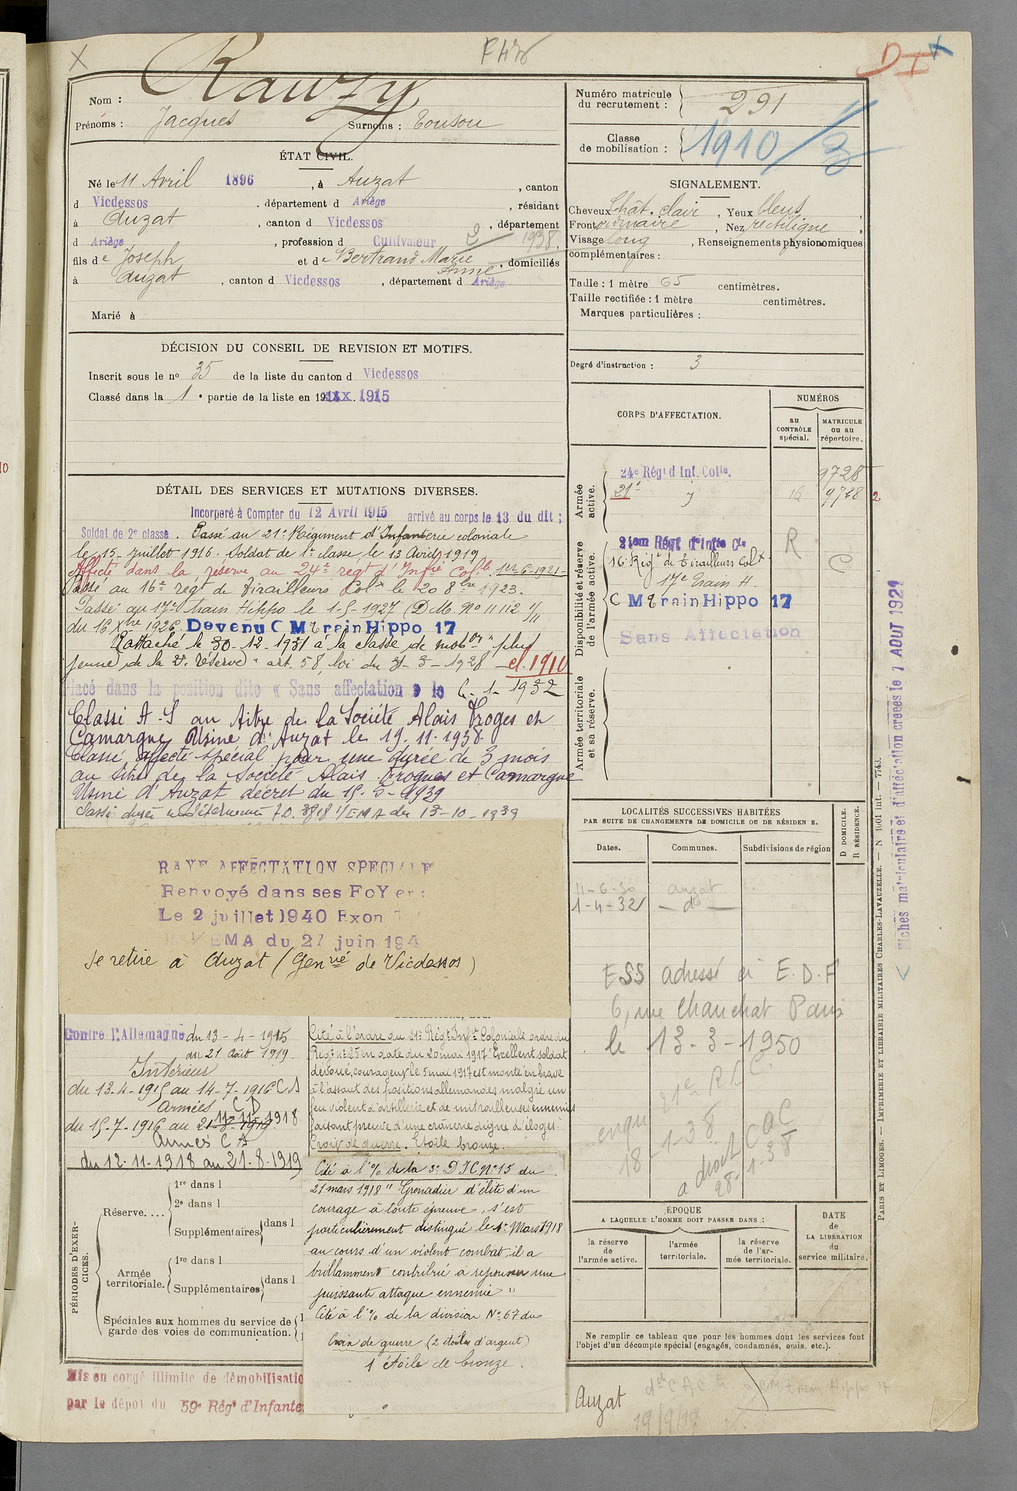 Nom : Rauzy
Prénoms : Jacques Surnoms : Touson
ÉTAT CIVIL.
Né le 11 Avril 1896, à Auzat, canton
d Vicdessos, département d Ariège, résidant
à Auzat, canton d Vicdessos, département
d Ariège, profession d Cultivateur
2 1938.
fils de Joseph et de Bertrand Marie Anne, domiciliés
à Auzat, canton d Vicdessos, département d Ariège
Marié à
DÉCISION DU CONSEIL DE REVISION ET MOTIFS.
Inscrit sous le no 35 de la liste du canton d Vicdessos
Classé dans la 1e partie de la liste en 19 1915
DÉTAIL DES SERVICES ET MUTATIONS DIVERSES.
Incorporé à Compter du 12 Avril 1915 arrivé au corps le 13 du dit ;
Soldat de 2e classe. Passé au 21e Régiment d'Infanterie coloniale
le 15 juillet 1916. Soldat de 1e classe le 13 Avril 1919
Affecté dans la réserve au 24e regt d'Infrie Colle 1er-6-1921
Passé au 16e regt de Tirailleurs Colx le 20 8bre 1923.
Passé au 17e Train Hippo le 1-5-1927 (D.M. No 11112 1/11
du 16 Xbre 1926 Devenu C M Train Hippo 17
Rattaché le 30-12-1931 à la classe de mobon plus
jeune de la 2e réserve art. 58 loi du 31-3-1928 cl. 1910
Placé dans la position dite « Sans affectation » le 6-1-1932
Classé A.S au titre de la Société Alais Froges et
Camargue Usine d'Auzat le 19-11-1938.
Classé affecté spécial pour une durée de 3 mois
au titre de la Société Alais Froges et Camargue
Usine d'Auzat décret du 15-3-1939
Classé durée indéterminée D. 3918 1/EMA du 13-10-1939
RAYE AFFECTATION SPECIALE
Renvoyé dans ses FoYers
Le 2 juillet 1940 Exon
EMA du 27 juin 194
Se retire à Auzat (Genrie de Vicdessos)
Contre l'Allemagne du 13-4-1915
au 21 août 1919.
Intérieur
du 13.4-1915 au 14-7-1916 C S
Armées C D
du 15-7-1916 au 11-11-1918
Armées C S
du 12-11-1918 au 21-8-1919
Cité à l'ordre du 21e Régt Inft Coloniale ordre du
Régt no 25 en date du 20 mai 1917. Excellent soldat
dévoué, courageux, le 5 mai 1917 est monté en brave
à l'assaut des positions allemandes malgré un
feu violent d'artillerie et de mitrailleuses ennemies
faisant preuve d'une crânerie digne d'éloges.
Croix de guerre. Etoile bronze.
Cité à l'% de la 3e DIC No 15 du
21 mars 1918 "Grenadier d'élite d'un
courage à toute épreuve, s'est
particulièrement distingué le 1er Mars 1918
au cours d'un violent combat, il a
brillamment contribué à repousser une
puissante attaque ennemie"
Cité à l'% de la division No 67 du
Croix de guerre (2 étoiles d'argent)
1 étoile de bronze.
PÉRIODES D'EXERCICES.
Réserve.... 1re dans l
2e dans l
Supplémentaires dans l
Armée territoriale. 1re dans l
Supplémentaires dans l
Spéciales aux hommes du service de
garde des voies de communication.
Mis en congé illimité de démobilisatio
par le dépôt du 59e Régt d'Infante
Numéro matricule du recrutement : 291
Classe de mobilisation : 1910/3
SIGNALEMENT.
Cheveux chât. clair, Yeux bleus,
Front ordinaire, Nez rectiligne,
Visage long, Renseignements physionomiques
complémentaires :
Taille : 1 mètre 65 centimètres.
Taille rectifiée : 1 mètre centimètres.
Marques particulières :
Degré d'instruction : 3
CORPS D'AFFECTATION.
NUMÉROS
AU CONTRÔLE spécial.
MATRICULE OU AU répertoire.
Armée active.
24e Régt d Inf. Colle. 9728
21e
Disponibilité et réserve de l'armée active.
21em Régt d'Infie Cle R
16e Rgt de Tirailleurs Colx C
17e Train H.
C M Train Hippo 17
Sans Affectation
Armée territoriale et sa réserve.
LOCALITÉS SUCCESSIVES HABITÉES
PAR SUITE DE CHANGEMENTS DE DOMICILE OU DE RÉSIDENCE.
Dates. Communes. Subdivisions de région D DOMICILE. R RÉSIDENCE.
11-6-30 auzat
1-4-32 — do —
ESS adressé à E.D.F
6, rue Chauchat Paris
le 13-3-1950
ÉPOQUE
A LAQUELLE L'HOMME DOIT PASSER DANS :
la réserve de l'armée active.
l'armée territoriale.
la réserve de l'armée territoriale.
DATE de LA LIBÉRATION du service militaire.
Ne remplir ce tableau que pour les hommes dont les services font
l'objet d'un décompte spécial (engagés, condamnés, omis, etc.).
Auzat
19/9/19
Fiches matriculaire et d'affectation créées le 1 AOUT 1921
PARIS ET LIMOGES. — IMPRIMERIE ET LIBRAIRIE MILITAIRES CHARLES-LAVAUZELLE. — N 1001 int. — 7743.